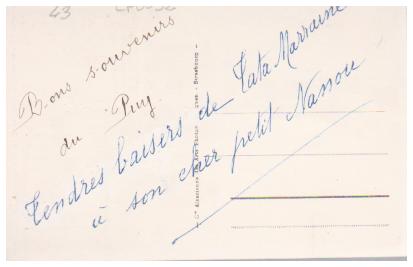 43
Bons souvenirs
du Puy
Tendres baisers de Tata Marraine
à son cher petit Nanou